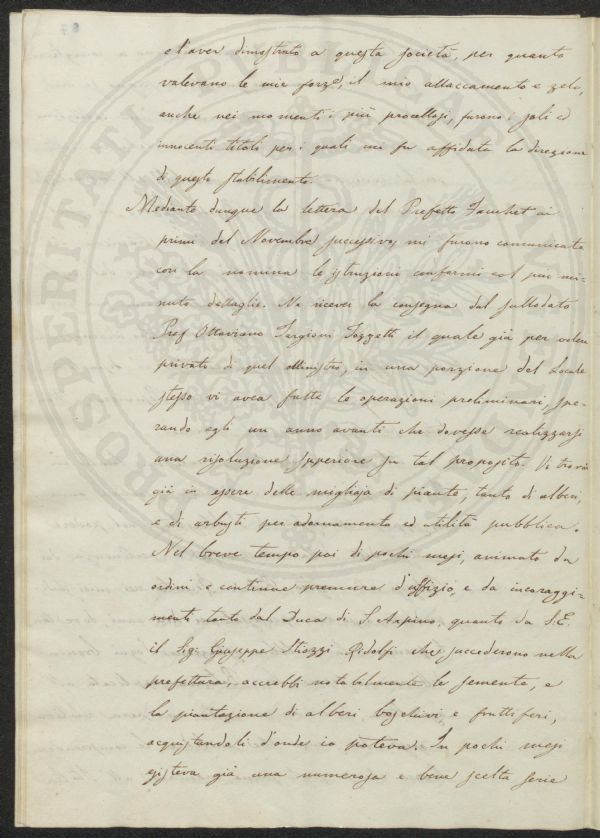 e l'aver dimostrato a questa società, per quanto
valevano le mie forze, il mio attaccamento e zelo,
anche nei momenti i più procellosi, furono i soli ed
innocenti titoli per i quali mi fu affidata la direzione
di questo stabilimento.
Mediante dunque la lettera del Prefetto Fauchet ai
primi del Novembre successivo, mi furono comunicate
con la nomina le istruzioni conformi col più mi-
nuto dettaglio. Ne ricevei la consegna dal sullodato
Prof Ottaviano Targioni Tozzetti il quale già per ordini
privati di quel Ministro, in una porzione del Locale
stesso vi avea fatte le operazioni preliminari, spe-
rando egli un anno avanti che dovesse realizzarsi
una risoluzione superiore su tal proposito. Vi trovai
già in essere delle migliaja di piante, tanto di alberi,
e di arbusti per adornamento ed utilità pubblica.
Nel breve tempo poi di pochi mesi, animato da
ordini e continue premure d'uffizio, e da incoraggi-
menti tanto dal Duca di S. Arpino, quanto da S.E.
il Sigr Giuseppe Stiozzi Ridolfi che succederono nella
prefettura, accrebbi notabilmente le semente, e
la piantazione di alberi boschivi e fruttiferi,
acquistandoli d'onde io poteva. In pochi mesi
esisteva già una numerosa e bene scelta serie
PROSPERITATI PUBLICAE